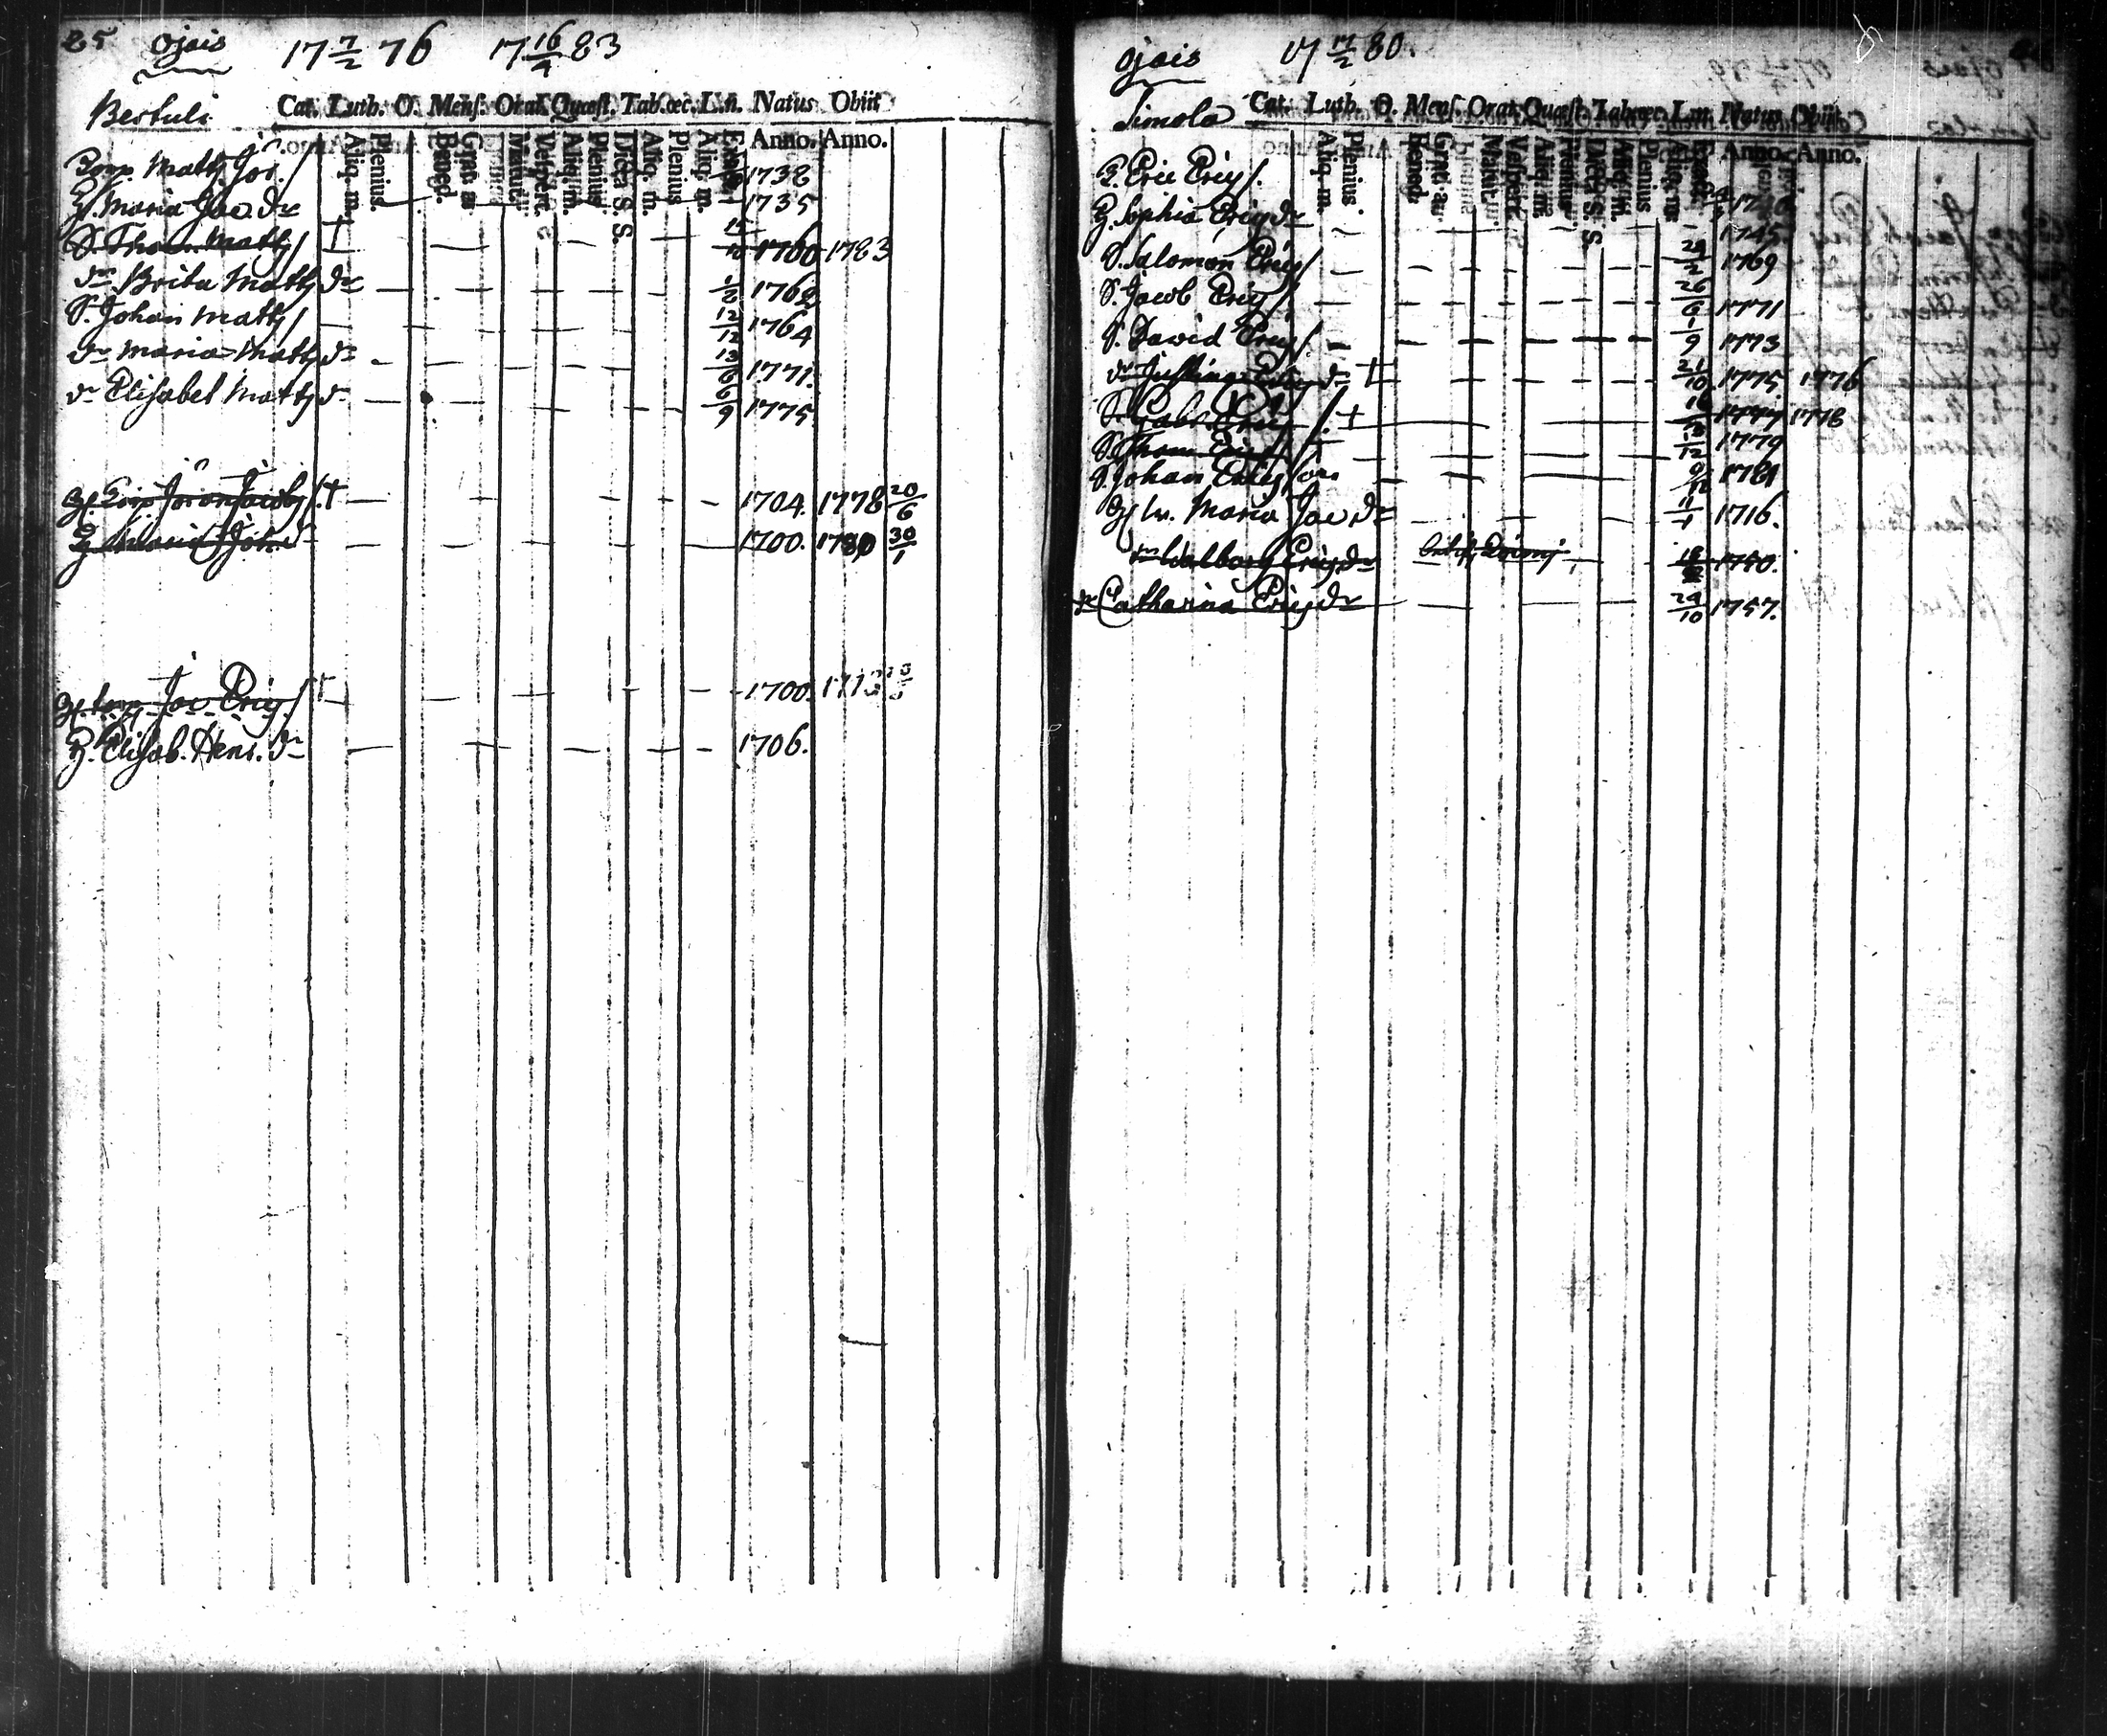 25 Ojais 17 7/2 76 17 16/4 83
Bertuli
Cat. Luth. O. Mens. Orat. Quæst. Tab. œc. L. n. Natus Obiit
Aliq. m. Plenius. Bened. Grat. a. Matut. Vespert. Aliq. m. Plenius Dicta S. S. Aliq. m. Plenius Aliq. m. Anno. Anno.
Matts Jör. / 1738
H. Maria Jac. dr 1735
S. Thom Matts / † 1760 1783
dr Brita Matts dr 1762
S. Johan Matts / 12/12 1764
dr Maria Matts dr 13/6 1771.
dr Elisabet Matts dr 6/9 1775.
Jacobs / † 1704. 1778 20/6
H. Maria Joh. dr 1700. 1780 30/1
Jac Erics / † 1700.
H. Elisab. Henr. dr 1706.
Ojais 17 17/2 80.
Simola
Cat. Luth. O. Mens. Orat. Quæst. Tab. œc. L. n. Natus Obiit
Aliq. m. Plenius. Bened. Grat. a. Matut. Vespert. Aliq. m. Plenius Dicta S. S. Aliq. m. Plenius Aliq. m. Anno. Anno.
Eric Erics /.
H. Sophia Erics dr 1745.
S. Salomon Erics / 29/2 1769
S. Jacob Erics / 26/6 1771
S. David Erics / 1/9 1773
dr Justina Erics dr † 21/10 1775 1776
S. Gabr. Erics / † 1777 1778
S. Thom Erics / † 13/12 1779
S. Johan Erics son 1781
Maria Jac dr 11/1 1716.
dr Walborg Erics dr 1750.
dr Catharina Erics dr 29/10 1757.